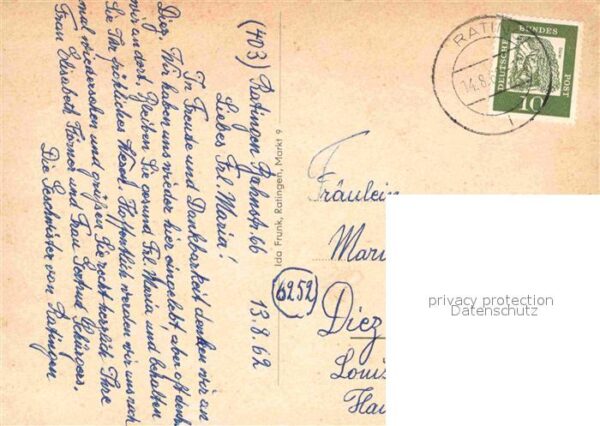 (403) Ratingen Bahnstr. 66 13.8.62
Liebes Frl. Maria!
In Freude und Dankbarkeit denken wir an
Diez. Wir haben uns wieder hier eingelebt, aber oft denken
wir an dort. Bleiben Sie gesund Frl. Maria und behalten
Sie Ihr fröhliches Wesen. Hoffentlich werden wir uns noch
mal wiedersehen und grüßen Sie recht herzlich Ihre
Frau Elisabeth und Frau Gertrud Schürgers.
Die Geschwister von Ratingen
Ida Frunk, Ratingen, Markt 9
RATIN
14.8.
DEUTSCHE BUNDES POST
10
Fräulein
Mari
6252
Diez
Louis
Hau
privacy protection
Datenschutz